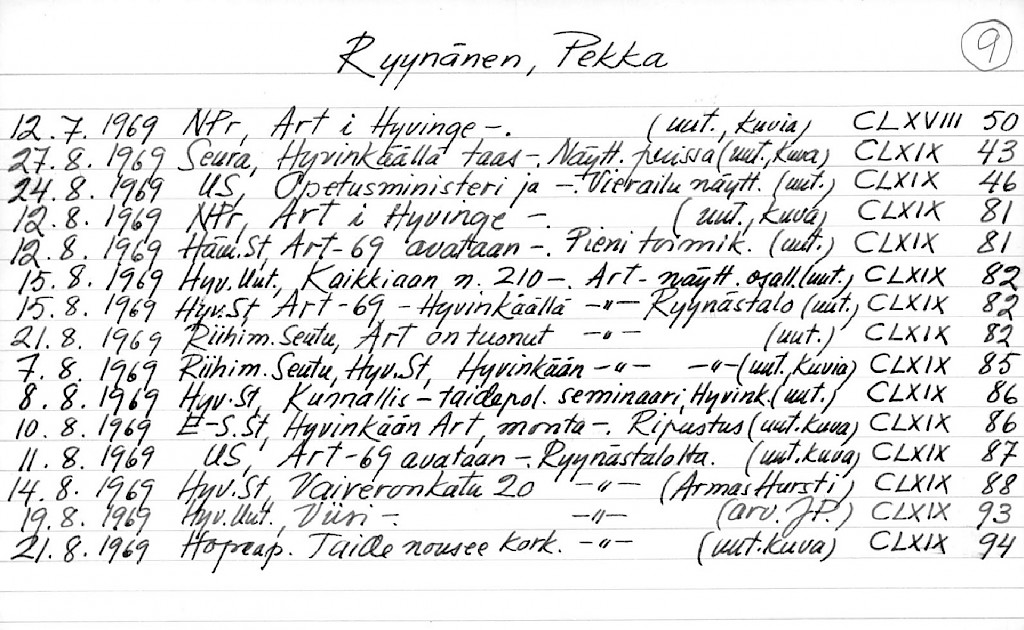 Ryynänen, Pekka 9
12.7.1969 NPr, Art i Hyvinge -. (uut., kuvia) CLXVIII 50
27.8.1969 Seura, Hyvinkäällä taas -. Näytt. (uut., kuva) CLXIX 43
24.8.1969 US, Opetusministeri ja -. Vierailu näytt. (uut.) CLXIX 46
12.8.1969 NPr, Art i Hyvinge -. (uut., kuva) CLXIX 81
12.8.1969 Häm.St, Art-69 avataan -. Pieni toimik. (uut.) CLXIX 81
15.8.1969 Hyv.Uut., Kaikkiaan n. 210 -. Art-näytt. osall. (uut.) CLXIX 82
15.8.1969 Hyv.St, Art-69 - Hyvinkäällä -"- Ryynästalo (uut.) CLXIX 82
21.8.1969 Riihim.Seutu, Art on tuonut -"- (uut.) CLXIX 82
7.8.1969 Riihim.Seutu, Hyv.St, Hyvinkään -"- -"- (uut., kuvia) CLXIX 85
8.8.1969 Hyv.St, Kunnallis-taidepol. seminaari, Hyvink. (uut.) CLXIX 86
10.8.1969 E-S.St, Hyvinkään Art, monta -. Ripustus (uut. kuva) CLXIX 86
11.8.1969 US, Art-69 avataan -. Ryynästalolta. (uut. kuva) CLXIX 87
14.8.1969 Hyv.St, Vaiveronkatu 20 -"- (Armas Hursti) CLXIX 88
19.8.1969 Hyv.Uut., Viisi -. -"- (arv. J.P.) CLXIX 93
21.8.1969 Hopeap. Taide nousee kork. -"- (uut. kuva) CLXIX 94